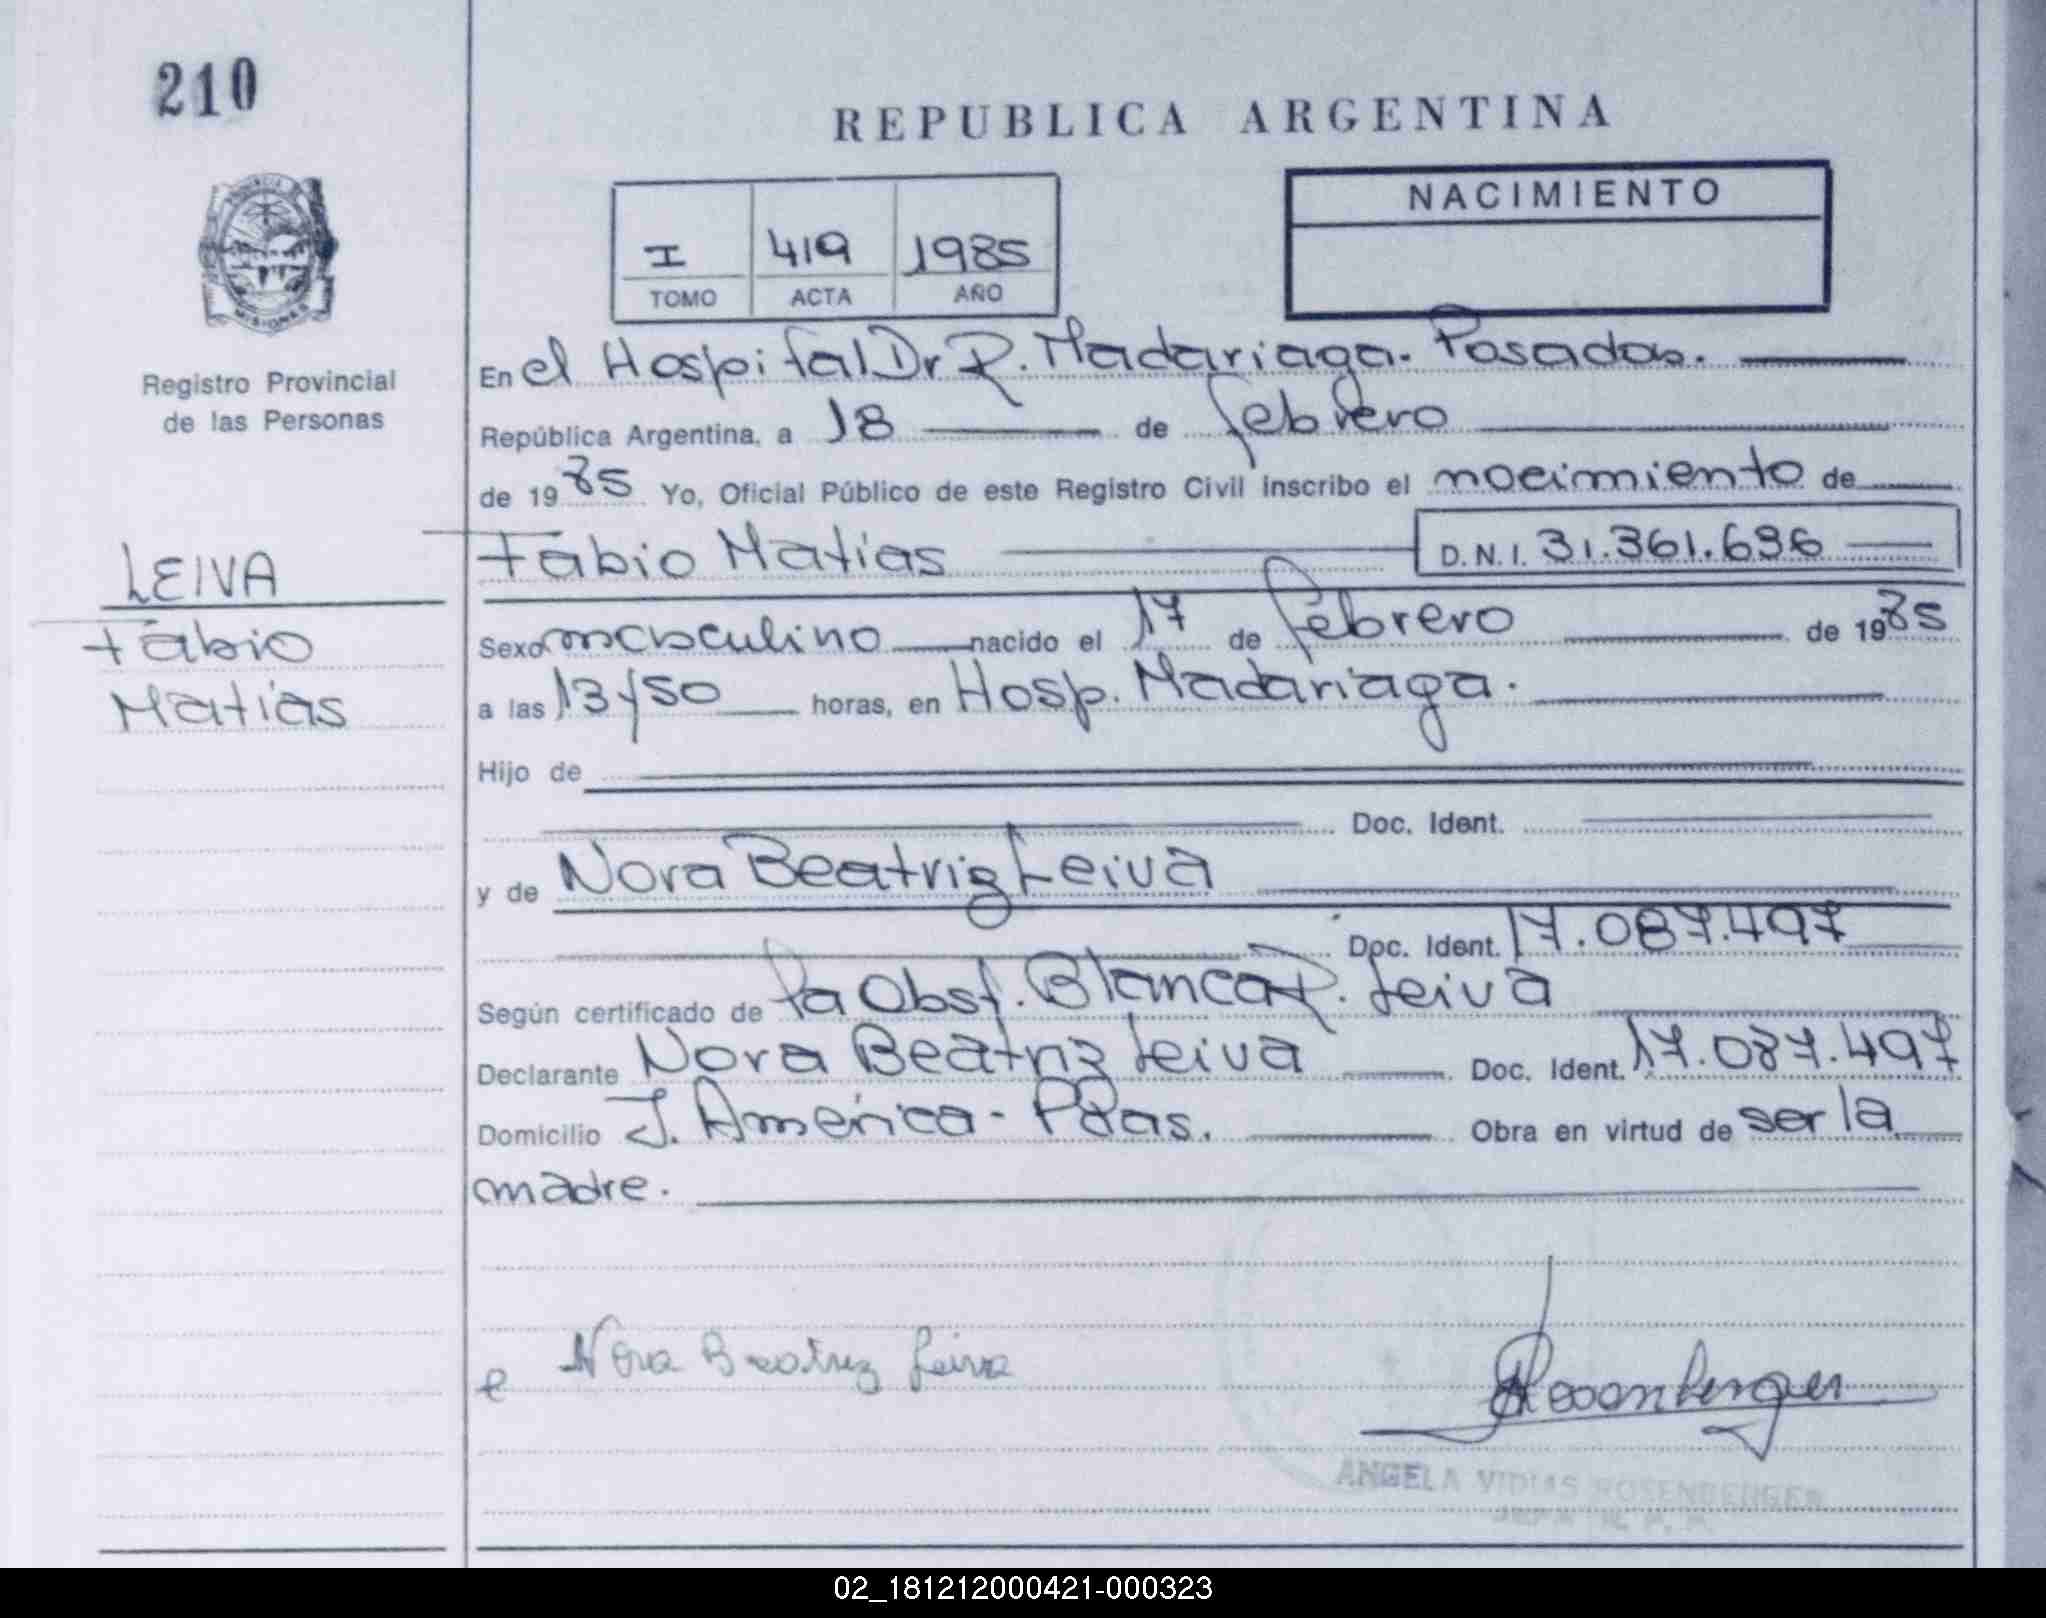 210
REPUBLICA ARGENTINA
NACIMIENTO
I 419 1985
TOMO ACTA AÑO
MISIONES
Registro Provincial
de las Personas
En el Hospital Dr R. Madariaga. Posadas.
República Argentina, a 18 de febrero
de 1985 Yo, Oficial Público de este Registro Civil inscribo el nacimiento de
Fabio Matias D.N.I. 31.361.696
LEIVA
Fabio
Matias
Sexo masculino nacido el 17 de febrero de 1985
a las 13/50 horas, en Hosp. Madariaga.
Hijo de
Doc. Ident.
y de Nora Beatriz Leiva
Doc. Ident. 17.087.497
Según certificado de la Obst. Blanca R. Leiva
Declarante Nora Beatriz Leiva Doc. Ident. 17.087.497
Domicilio J. América - Pdas. Obra en virtud de ser la
madre.
Nora Beatriz Leiva
Rosenberger
ANGELA VIDIAS ROSENBERGER
02_181212000421-000323